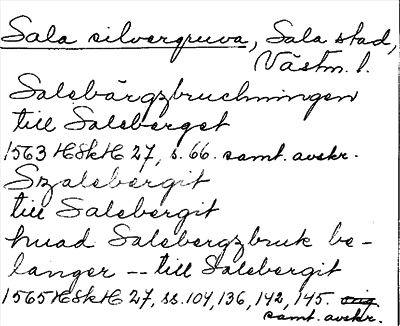 Sala silvergruva, Sala stad,
Västm. l.
Salebärgzbruchningen
till Saleberget
1563 HSkH 27, s. 66. samt. avskr.
Szalebergit
till Salebergit
huad Salebergzbruk be-
langer -- till Salebergit
1565 HSkH 27, ss. 104, 136, 142, 145.
samt. avskr.